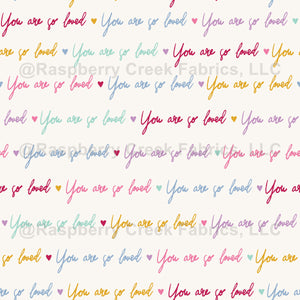 You are so loved ♥ You are so loved ♥ You are so loved ♥ You are so
so loved ♥ You are so loved ♥ You are so loved ♥ You are
@Raspberry Creek Fabrics, LLC
You are so loved ♥ You are so loved ♥ You are so loved ♥
are so loved ♥ You are so loved ♥ You are so loved ♥ You
so loved ♥ You are so loved ♥ You are so loved ♥ You are so
@Raspberry Creek Fabrics, LLC
You are so loved ♥ You are so loved ♥ You are so loved
You are so loved ♥ You are so loved ♥ You are so loved ♥
@Raspberry Creek Fabrics, LLC
so loved ♥ You are so loved ♥ You are so loved ♥ You are
You are so loved ♥ You are so loved ♥ You are so loved